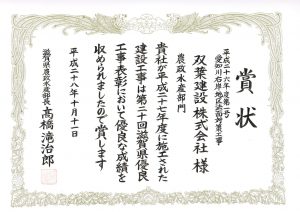 賞状
平成二十六年度第二号
愛知川右岸地区法面対策工事
双葉建設株式会社 様
農政水産部門
貴社が平成二十七年度に施工された
建設工事は第二十回滋賀県優良
工事表彰において優良な成績を
収められましたので賞します
平成二十八年十月十一日
滋賀県農政水産部長
高橋滝治郎